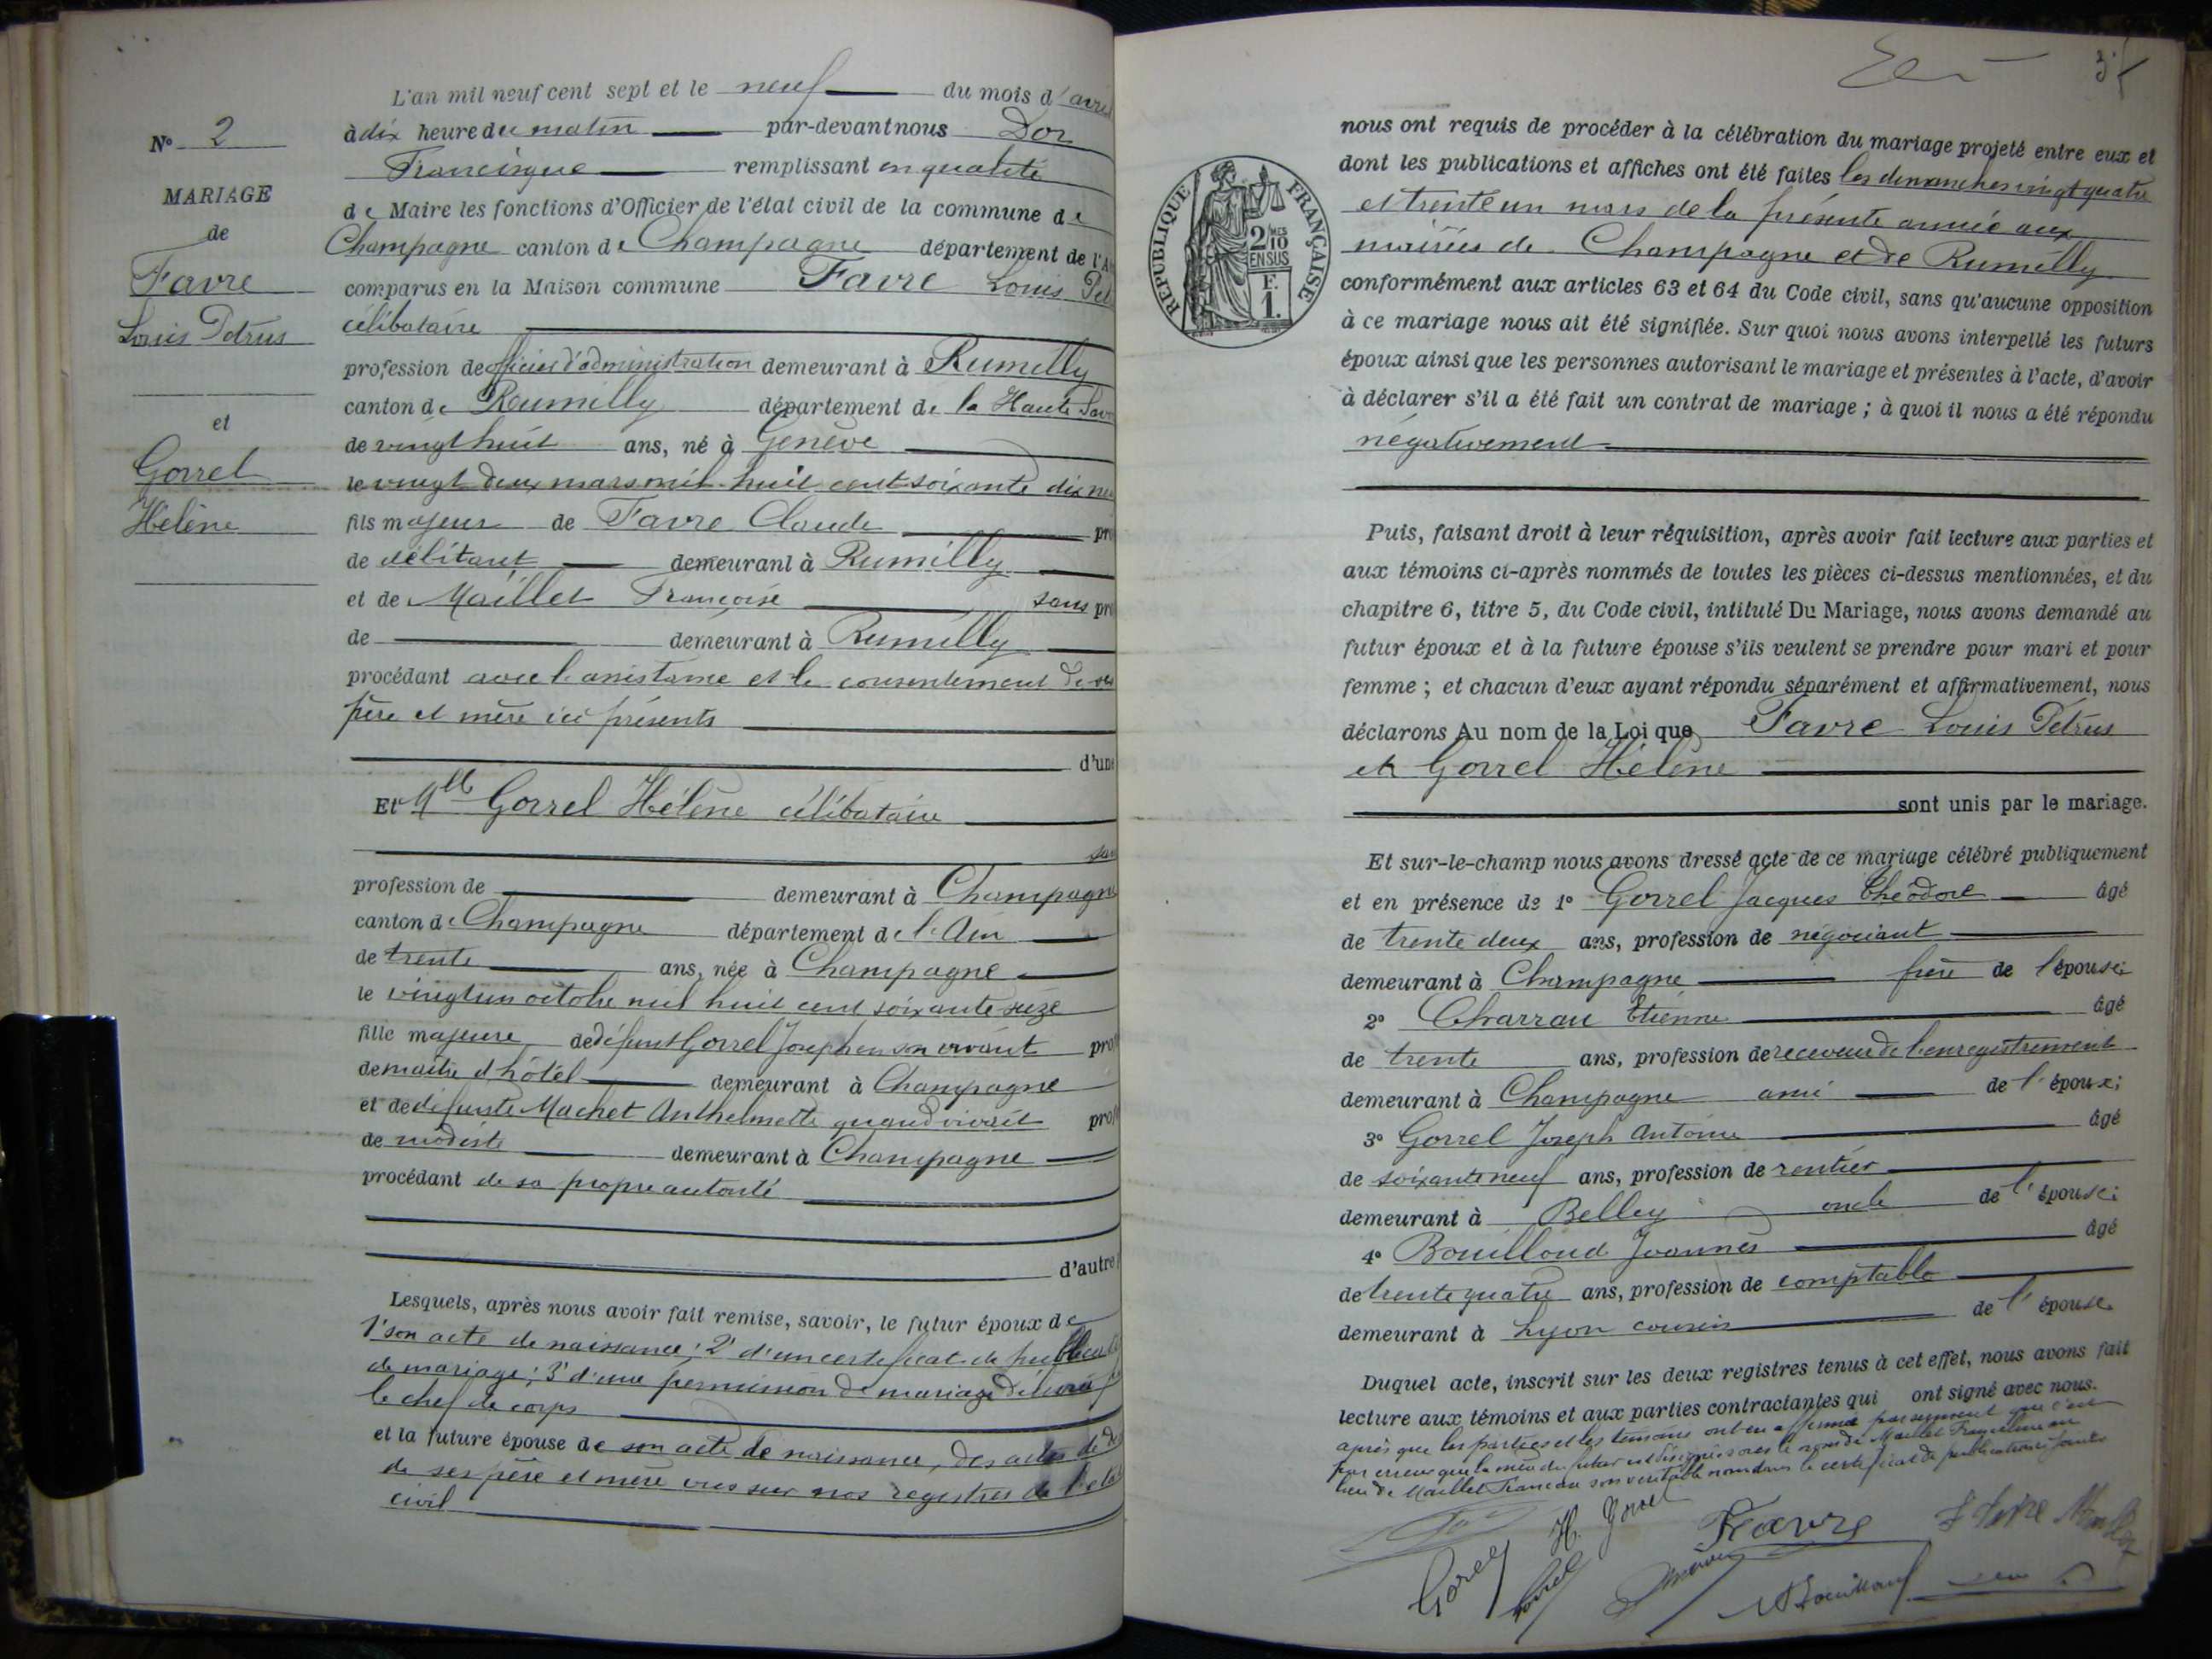 N° 2
MARIAGE
de
Favre
Louis Pétrus
et
Gorrel
Hélène
L'an mil neuf cent sept et le neuf du mois d'avril
à dix heure du matin par-devant nous Dor
Francisque remplissant en qualité
de Maire les fonctions d'Officier de l'état civil de la commune de
Champagne canton de Champagne département de l'A
comparus en la Maison commune Favre Louis Pét
célibataire
profession de officier d'administration demeurant à Rumilly
canton de Rumilly département de la Haute Savo
de vingt huit ans, né à Genève
le vingt deux mars mil huit cent soixante dix neu
fils majeur de Favre Claude pro
de débitant demeurant à Rumilly
et de Maillet Françoise sans pro
de demeurant à Rumilly
procédant avec l'assistance et le consentement de ses
père et mère ici présents
d'une
Et Mlle Gorrel Hélène célibataire
san
profession de demeurant à Champagne
canton de Champagne département de l'Ain
de trente ans, née à Champagne
le vingt un octobre mil huit cent soixante seize
fille majeure de défunt Gorrel Joseph en son vivant prof
de maître d'hôtel demeurant à Champagne
et de défunte Machet Anthelmette quand vivait prof
de modiste demeurant à Champagne
procédant de sa propre autorité
d'autre
Lesquels, après nous avoir fait remise, savoir, le futur époux de
1° son acte de naissance; 2° d'un certificat de publica
de mariage; 3° d'une permission de mariage délivrée
le chef de corps
et la future épouse de son acte de naissance, des actes de dé
de ses père et mère vus sur nos registres de l'état
civil
nous ont requis de procéder à la célébration du mariage projeté entre eux et
dont les publications et affiches ont été faites les dimanches vingt quatre
et trente un mars de la présente année aux
mairies de Champagne et de Rumilly
RÉPUBLIQUE FRANÇAISE
2/10 MES
EN SUS
F.
1.
conformément aux articles 63 et 64 du Code civil, sans qu'aucune opposition
à ce mariage nous ait été signifiée. Sur quoi nous avons interpellé les futurs
époux ainsi que les personnes autorisant le mariage et présentes à l'acte, d'avoir
à déclarer s'il a été fait un contrat de mariage ; à quoi il nous a été répondu
négativement
Puis, faisant droit à leur réquisition, après avoir fait lecture aux parties et
aux témoins ci-après nommés de toutes les pièces ci-dessus mentionnées, et du
chapitre 6, titre 5, du Code civil, intitulé Du Mariage, nous avons demandé au
futur époux et à la future épouse s'ils veulent se prendre pour mari et pour
femme ; et chacun d'eux ayant répondu séparément et affirmativement, nous
déclarons Au nom de la Loi que Favre Louis Pétrus
et Gorrel Hélène
sont unis par le mariage.
Et sur-le-champ nous avons dressé acte de ce mariage célébré publiquement
et en présence de 1° Gorrel Jacques Théodore âgé
de trente deux ans, profession de négociant
demeurant à Champagne frère de l'épouse;
2° Charrau Etienne âgé
de trente ans, profession de receveur de l'enregistrement
demeurant à Champagne ami de l'époux;
3° Gorrel Joseph Antoine âgé
de soixante neuf ans, profession de rentier
demeurant à Belley oncle de l'épouse;
4° Bouilloud Joannès âgé
de trente quatre ans, profession de comptable
demeurant à Lyon cousin de l'épouse
Duquel acte, inscrit sur les deux registres tenus à cet effet, nous avons fait
lecture aux témoins et aux parties contractantes qui ont signé avec nous.
après que les parties et les témoins ont en affirmé par serment que c'est
par erreur que la mère du futur est désignée sous le nom de Maillet Françoise au
lieu de Maillet son véritable nom dans le certificat de publications
H. Gorrel
Favre
Gorrel
Gorrel
Bouilloud